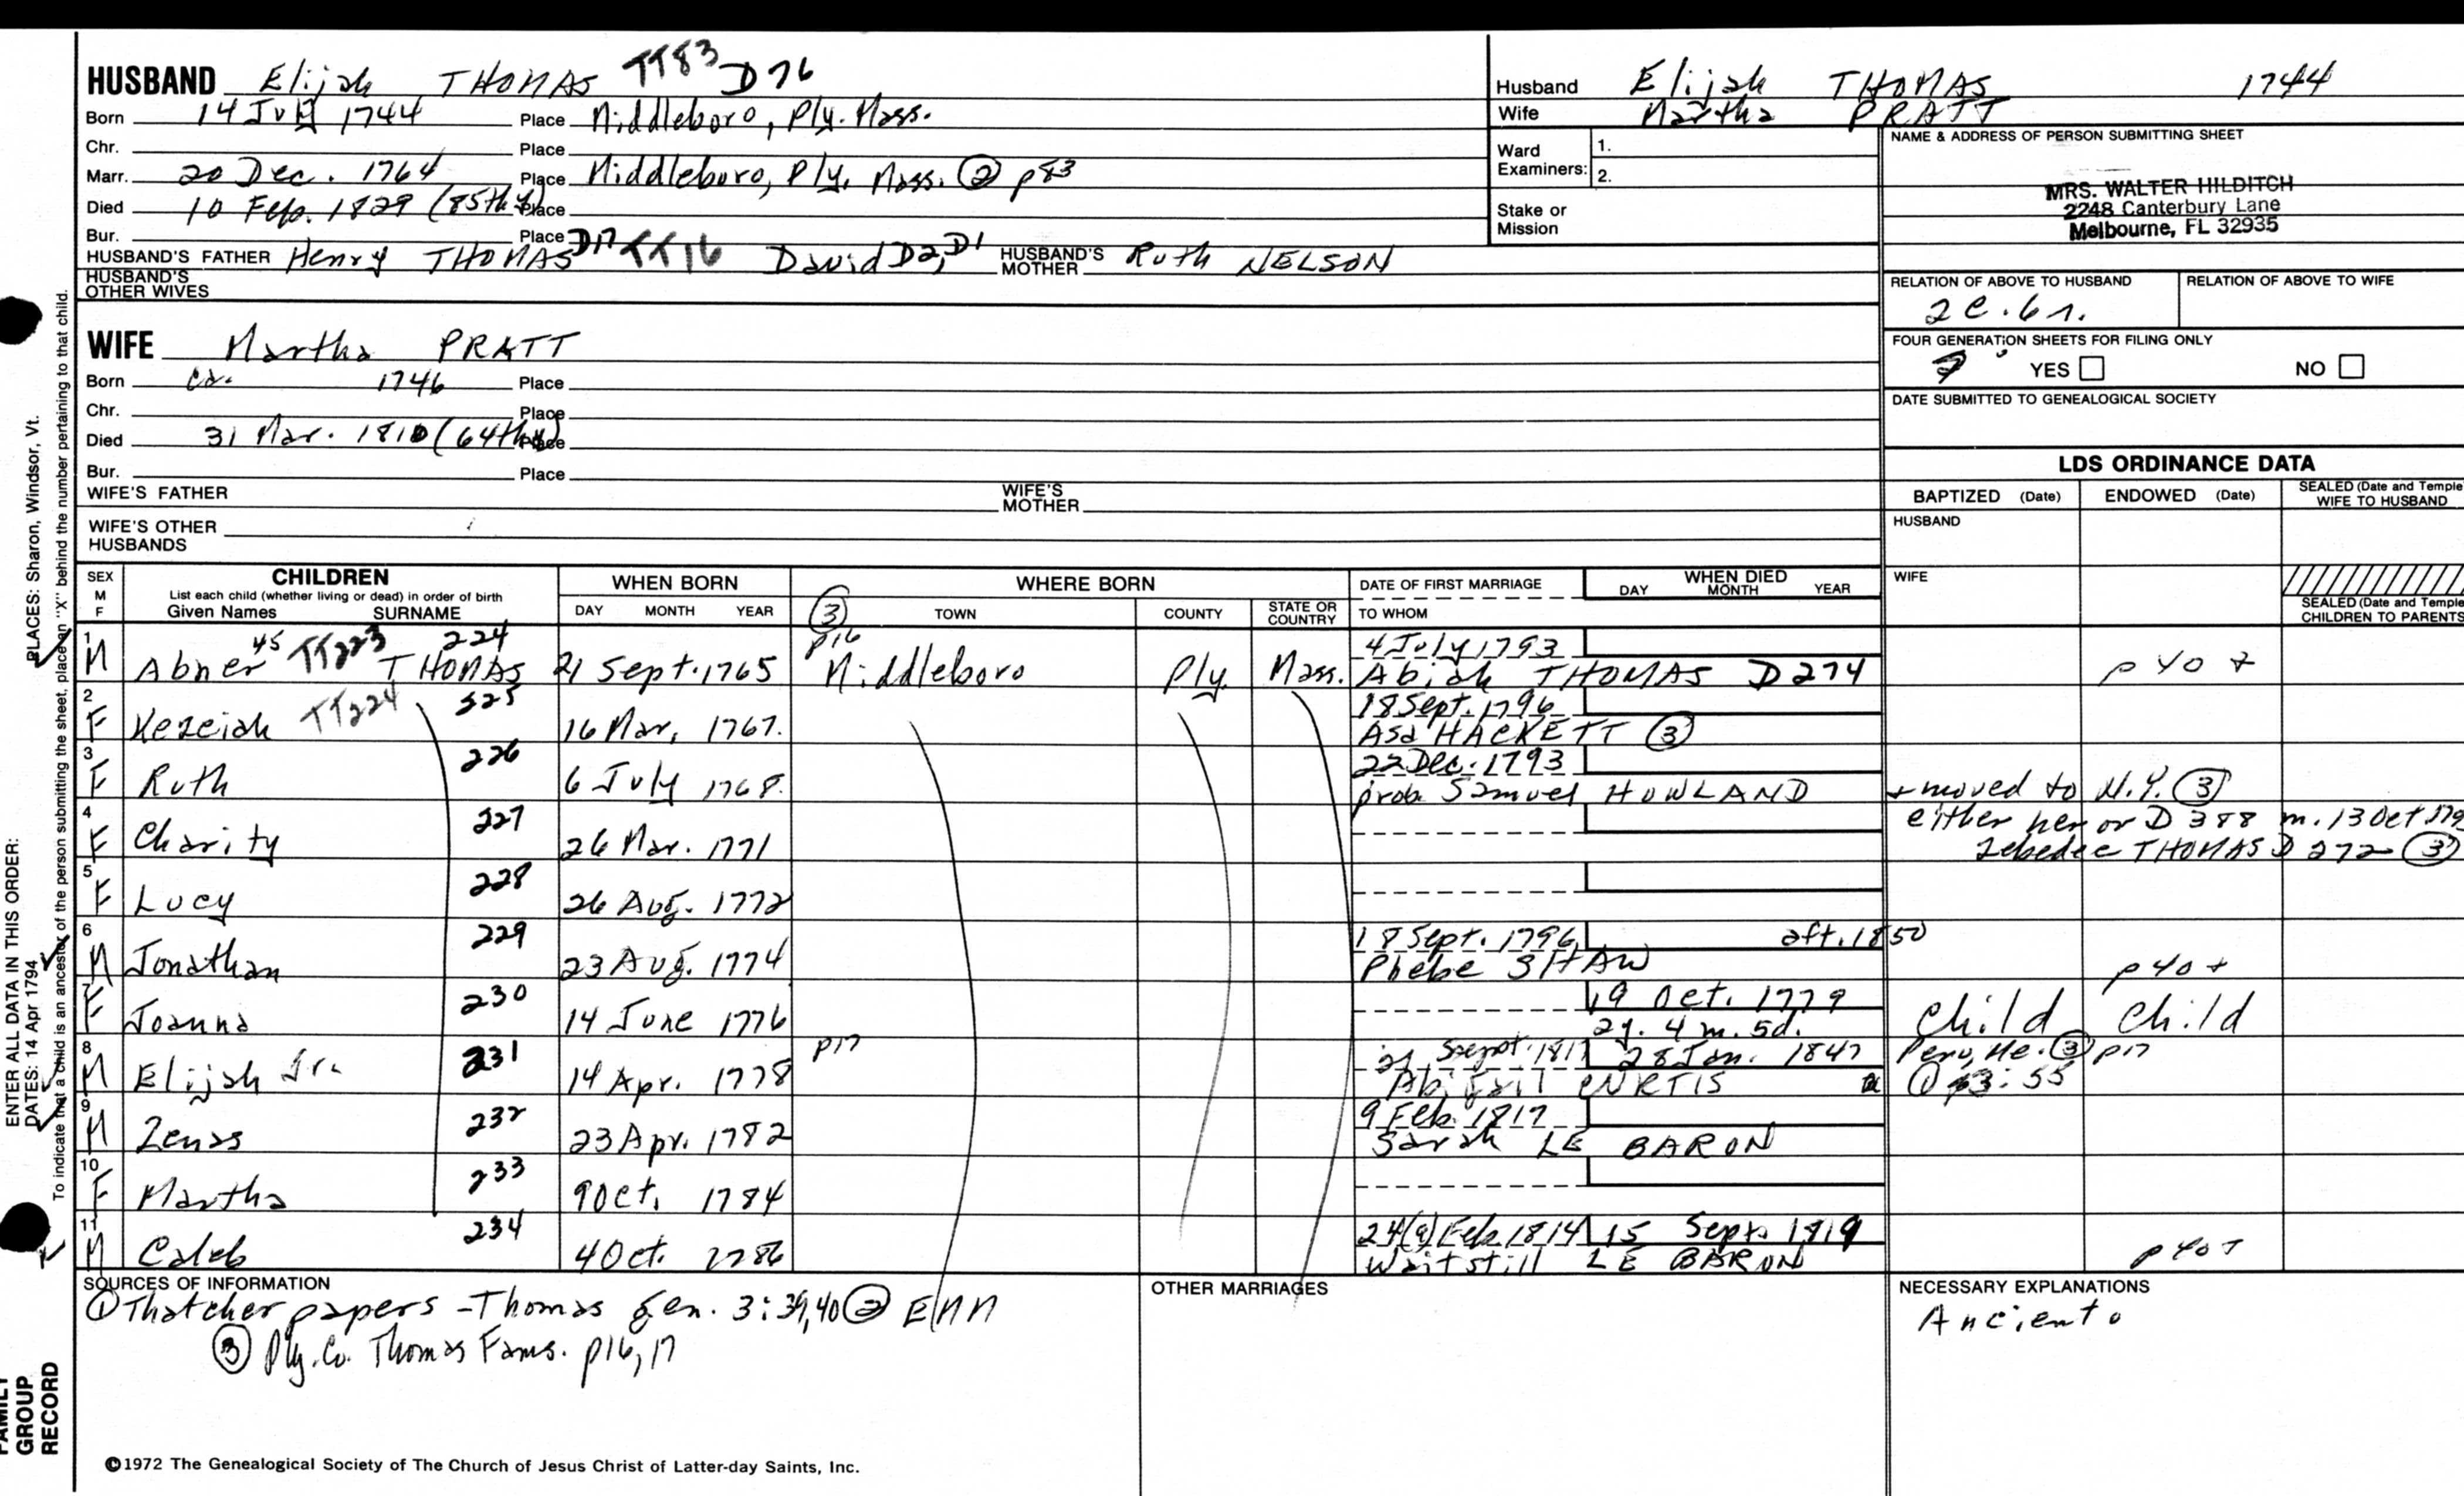 HUSBAND Elijah THOMAS TT83 D76
Born 14 July 1744 Place Middleboro, Ply. Mass.
Chr. Place
Marr. 20 Dec. 1764 Place Middleboro, Ply. Mass. ② p83
Died 10 Feb. 1829 (85th y) Place
Bur. Place
HUSBAND'S FATHER Henry THOMAS D17 TT16 David D2, D1 HUSBAND'S MOTHER Ruth NELSON
HUSBAND'S OTHER WIVES
Husband Elijah THOMAS 1744
Wife Martha PRATT
Ward Examiners: 1.
2.
Stake or Mission
NAME & ADDRESS OF PERSON SUBMITTING SHEET
MRS. WALTER HILDITCH
2248 Canterbury Lane
Melbourne, FL 32935
RELATION OF ABOVE TO HUSBAND RELATION OF ABOVE TO WIFE
2c.6r.
FOUR GENERATION SHEETS FOR FILING ONLY
YES NO
DATE SUBMITTED TO GENEALOGICAL SOCIETY
WIFE Martha PRATT
Born ca. 1746 Place
Chr. Place
Died 31 Mar. 1810 (64th y) Place
Bur. Place
WIFE'S FATHER WIFE'S MOTHER
WIFE'S OTHER HUSBANDS
LDS ORDINANCE DATA
BAPTIZED (Date) ENDOWED (Date) SEALED (Date and Temple) WIFE TO HUSBAND
HUSBAND
WIFE
SEALED (Date and Temple) CHILDREN TO PARENTS
SEX M F CHILDREN WHEN BORN WHERE BORN DATE OF FIRST MARRIAGE WHEN DIED
List each child (whether living or dead) in order of birth
Given Names SURNAME DAY MONTH YEAR ③ TOWN COUNTY STATE OR COUNTRY TO WHOM DAY MONTH YEAR
1 M Abner 45 TT223 THOMAS 224 21 Sept. 1765 p16 Middleboro Ply. Mass. 4 July 1793 Abiah THOMAS D274 p40+
2 F Keziah TT224 225 16 Mar, 1767. 18 Sept. 1796 Asa HACKETT ③
3 F Ruth 226 6 July 1768. 22 Dec. 1793 prob. Samuel HOWLAND + moved to N.Y. ③
4 F Charity 227 26 Mar. 1771 either her or D388 m. 13 Oct 179
Zebedee THOMAS D 272 ③
5 F Lucy 228 26 Aug. 1772
6 M Jonathan 229 23 Aug. 1774 18 Sept. 1796 Phebe SHAW aft. 1850 p40+
7 F Joanna 230 14 June 1776 19 Oct. 1779 2y. 4m. 5d. Child Child
8 M Elijah Jr. 231 14 Apr. 1778 p17 Sept. 1817 Abigail CURTIS 28 Jan. 1847 Peru, Me. ③ p17
① p3:55
9 M Zenas 232 23 Apr. 1782 9 Feb. 1817 Sarah LE BARON
10 F Martha 233 9 Oct. 1784
11 M Caleb 234 4 Oct. 1786 24(9) Feb. 1814 Waitstill LE BARON 15 Sept. 1819 p40+
SOURCES OF INFORMATION
① Thatcher papers - Thomas gen. 3:39,40 ② EMM
③ Ply. Co. Thomas Fams. p16, 17
OTHER MARRIAGES
NECESSARY EXPLANATIONS
Ancient.
©1972 The Genealogical Society of The Church of Jesus Christ of Latter-day Saints, Inc.
ENTER ALL DATA IN THIS ORDER:
DATES: 14 Apr 1794
PLACES: Sharon, Windsor, Vt.
To indicate that a child is an ancestor of the person submitting the sheet, place an "X" behind the number pertaining to that child.
FAMILY GROUP RECORD